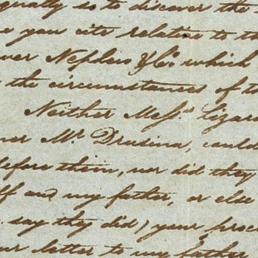 equally is to discover the
you cite relation to
over Nephew & Co. which
the circumstances of
Neither Messrs. Lizar
nor Mr. Drusina, could
before them, nor did they
ff and my father, or else
say they did, your proc
ur letter to my father